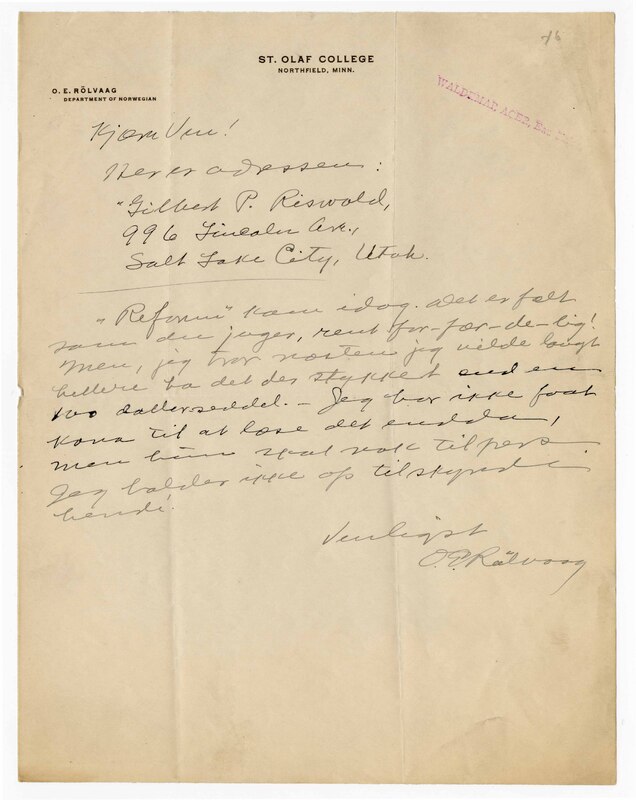 76
ST. OLAF COLLEGE
NORTHFIELD, MINN.
O. E. RÖLVAAG
DEPARTMENT OF NORWEGIAN
WALDEMAR AGER,
Kjære Ven!
Her er adressen:
"Gilbert P. Riswold,
996 Lincoln Ave.,
Salt Lake City, Utah.
"Reform" kom idag. Det er falt
som du jager, rent for-fær-de-lig!
Men, jeg tror næsten jeg vilde langt
hellere ha det der stykket end en
100 dollarseddel. – Jeg har ikke faat
kona til at læse det endda,
men hun skal nok tilpers
Jeg holder ikke op tilskynde
hende!
Venligst
O.E. Rölvaag